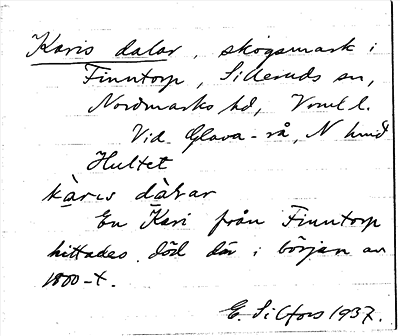 Karis dalar, skogsmark i
Finntorp, Silleruds sn,
Nordmarks hd, Vrml l.
Vid Glava-rå, N
Hultet
En Kari från Finntorp
hittades död där i början av
1800-t.
E. Silfors 1937.